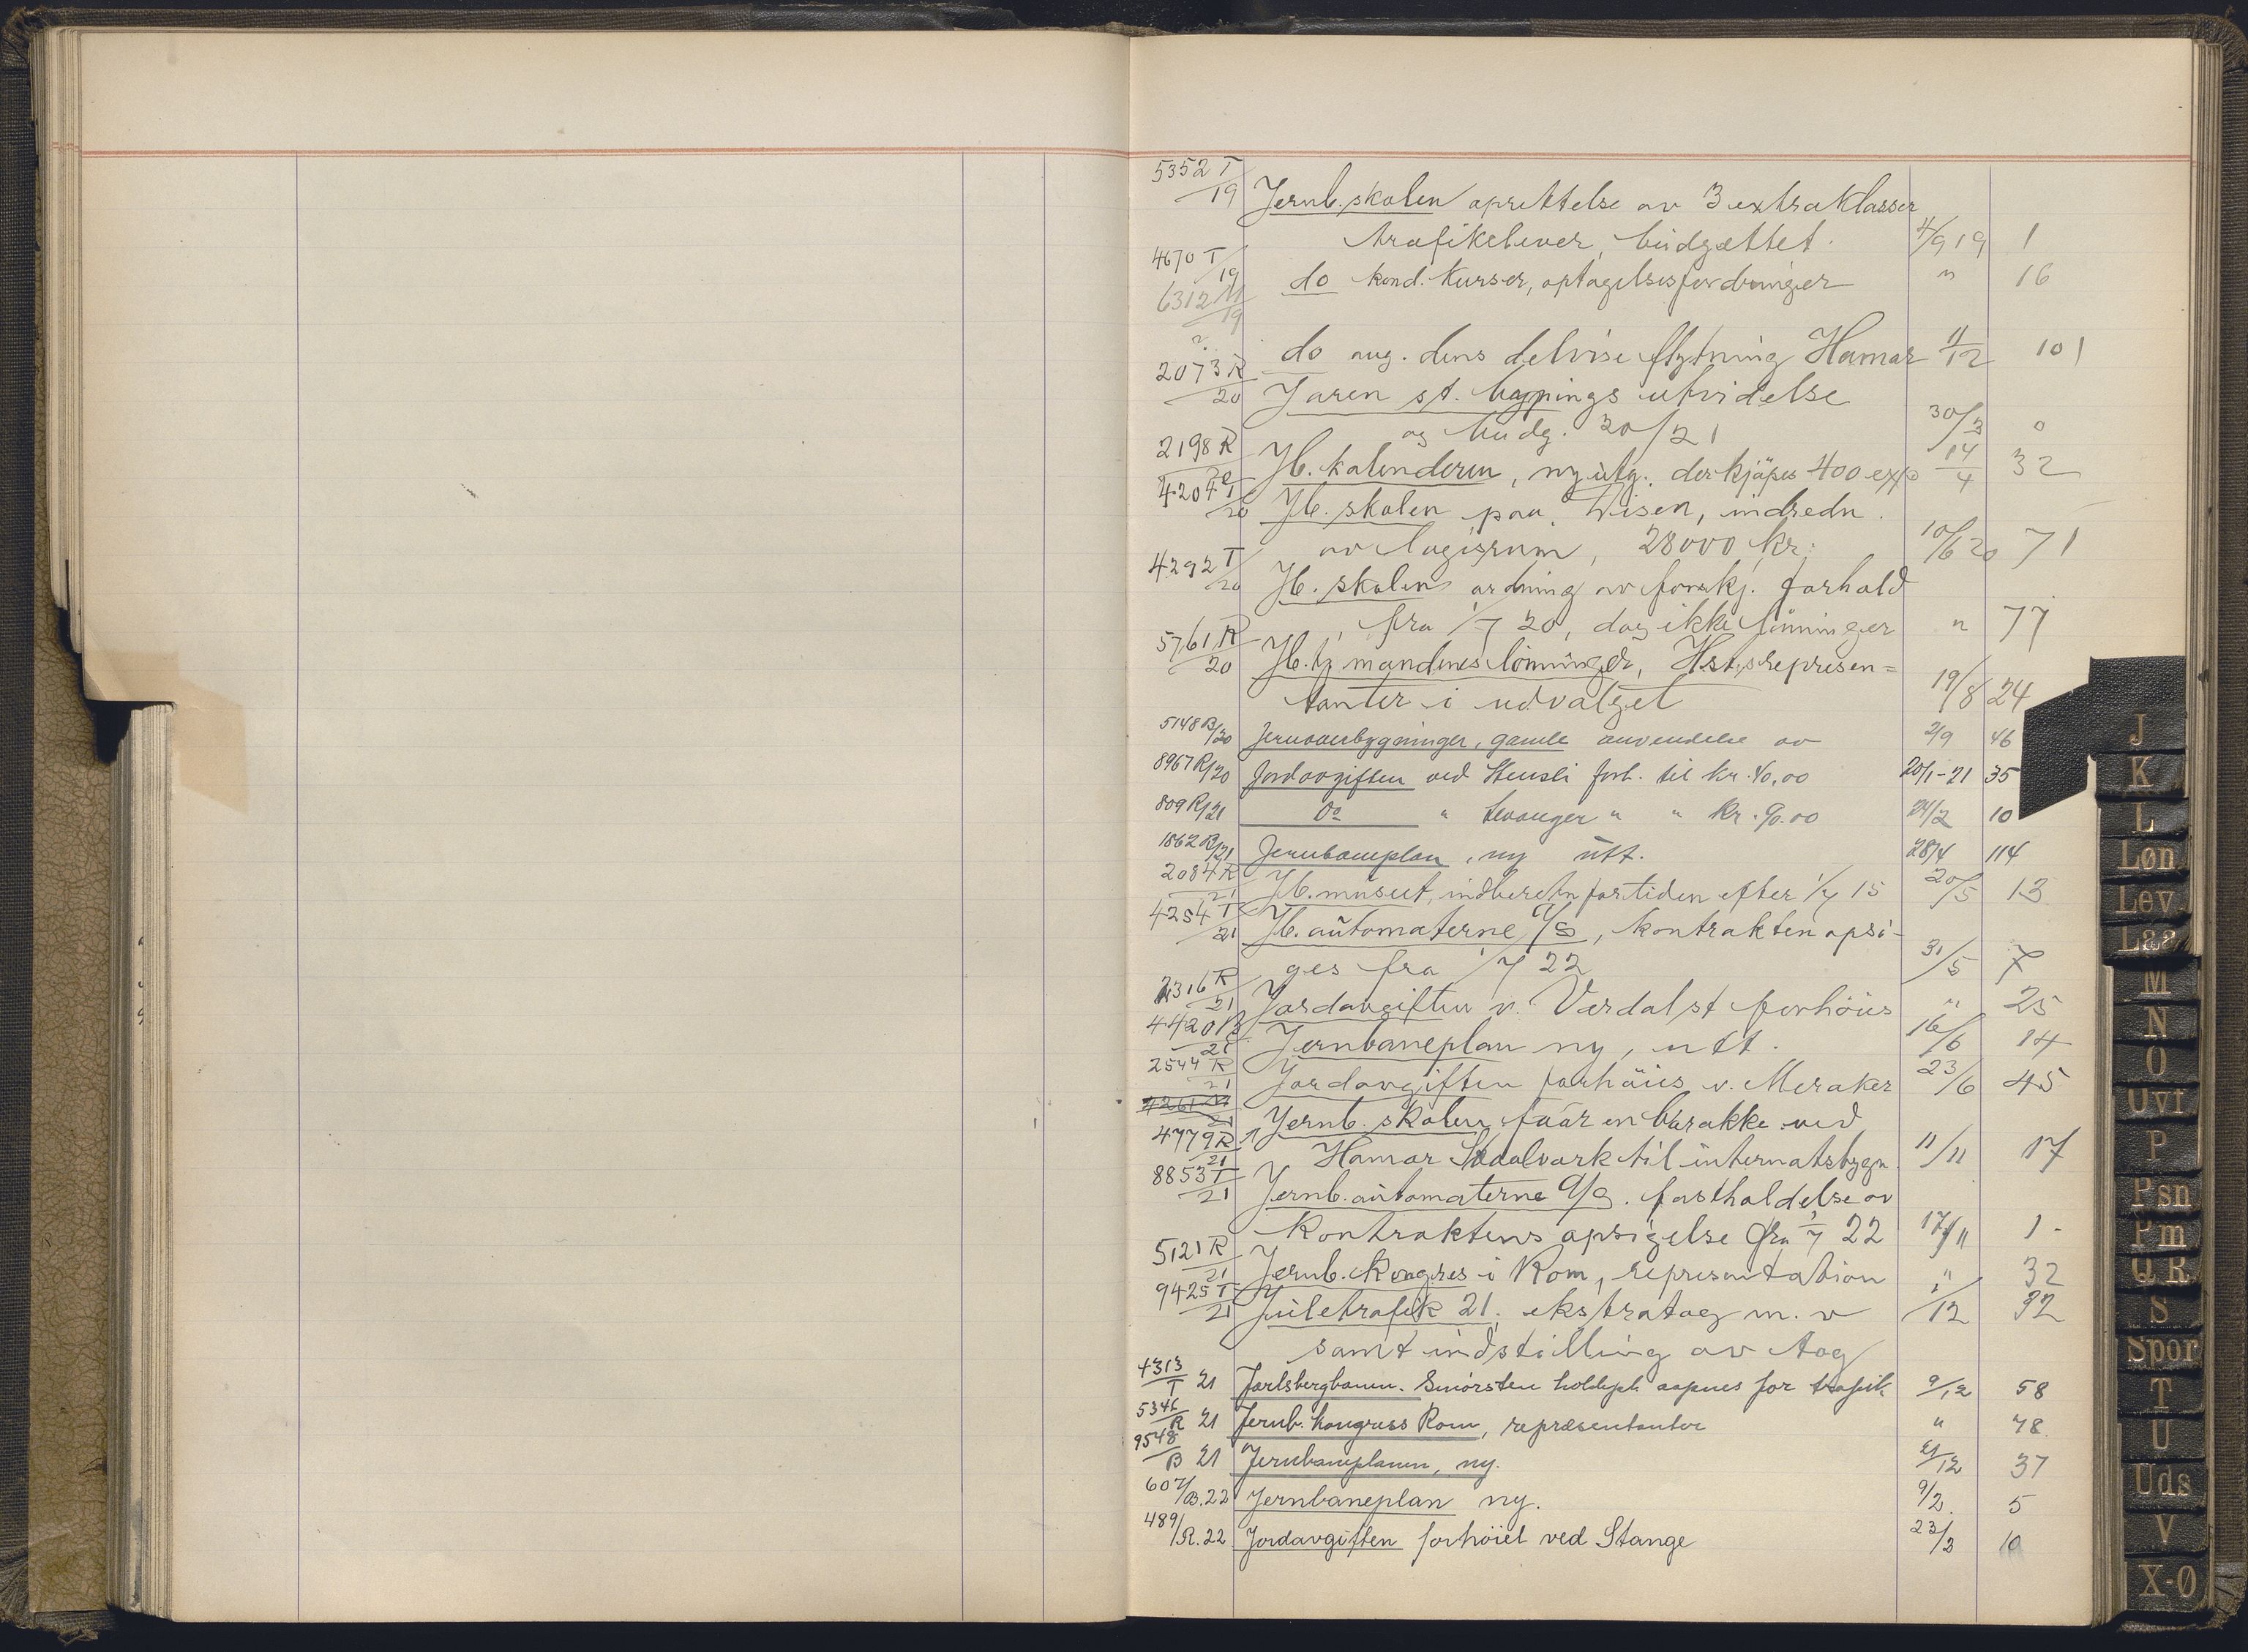 5352 T/19 Jernb. skolen oprettelse av 3 extraklasser
trafikelever, budgættet. 4/9 19 1
4670 T/19 do kond. kurser, optagelsesfordringer " 16
6312 M/19
do ang. dens delvise flytning Hamar 11/12 101
2073 R/20 Jaren st. bygnings utvidelse
og budg. 20/21 30/3 0
2198 R/20 Jb. kalenderen, ny utg. der kjøpes 400 expl 14/4 32
4204 T/20 Jb. skolen paa Disen, indredn.
av logisrum, 28000 kr. 10/6 20 71
4292 T/20 Jb. skolen ordning av forskj. forhold
fra 1/7 20, dog ikke lønninger " 77
5761 R/20 Jb. tj mandenes lønninger, Hst.s represen=
tanter i udvalget 19/8 24
5148 B/20 Jernoverbygninger, gamle anvendelse av 2/9 46
8967 R/20 Jordavgiften ved Steinsli forh. til kr. 40,00 20/1-21 35
809 R/21 Do " Levanger " " kr. 90.00 24/2 10
1862 B/21 Jernbaneplan, ny utf. 28/4 114
2084 R/21 Jb. museet, indberetn for tiden efter 1/7 15 20/5 13
4254 T/21 Jb. automaterne A/S, kontrakten opsi-
ges fra 1/7 22 31/5 7
2316 R/21 Jordavgiften v. Værdal st forhöies " 25
4420 B/21 Jernbaneplan ny, utf. 16/6 14
2544 R/21 Jordavgiften forhöies v. Meraker 23/6 45
4261 M/21
4779 R/21 Jernb. skolen faar en barakke ved
Hamar Staalvark til internatsbygn. 11/11 17
8853 T/21 Jernb. automaterne A/S. fastholdelse av
Kontraktens opsigelse fra 1/7 22 17/11 1-
5121 R/21 Jernb. Kongres i Rom, representation " 32
9425 T/21 Juletrafik 21, ekstratog m. v 1/12 92
samt indstilling av tog
4313/T 21 Jarlsbergbanen. Smørsten holdepl. aapnes for trafik 9/12 58
5346/R 21 Jernb. kongress Rom, repræsentanter " 78
9548/B 21 Jernbaneplanen, ny. 21/12 37
607/B. 22 Jernbaneplan ny. 9/2. 5
489/R. 22 Jordavgiften forhöiet ved Stange 23/2 10
J
K
L
Løn
Lev.
Laa
M
N
O
Ovf
P
Psn
Pm
Q R
S
Spor
T
U
Uds
V
X-Ø